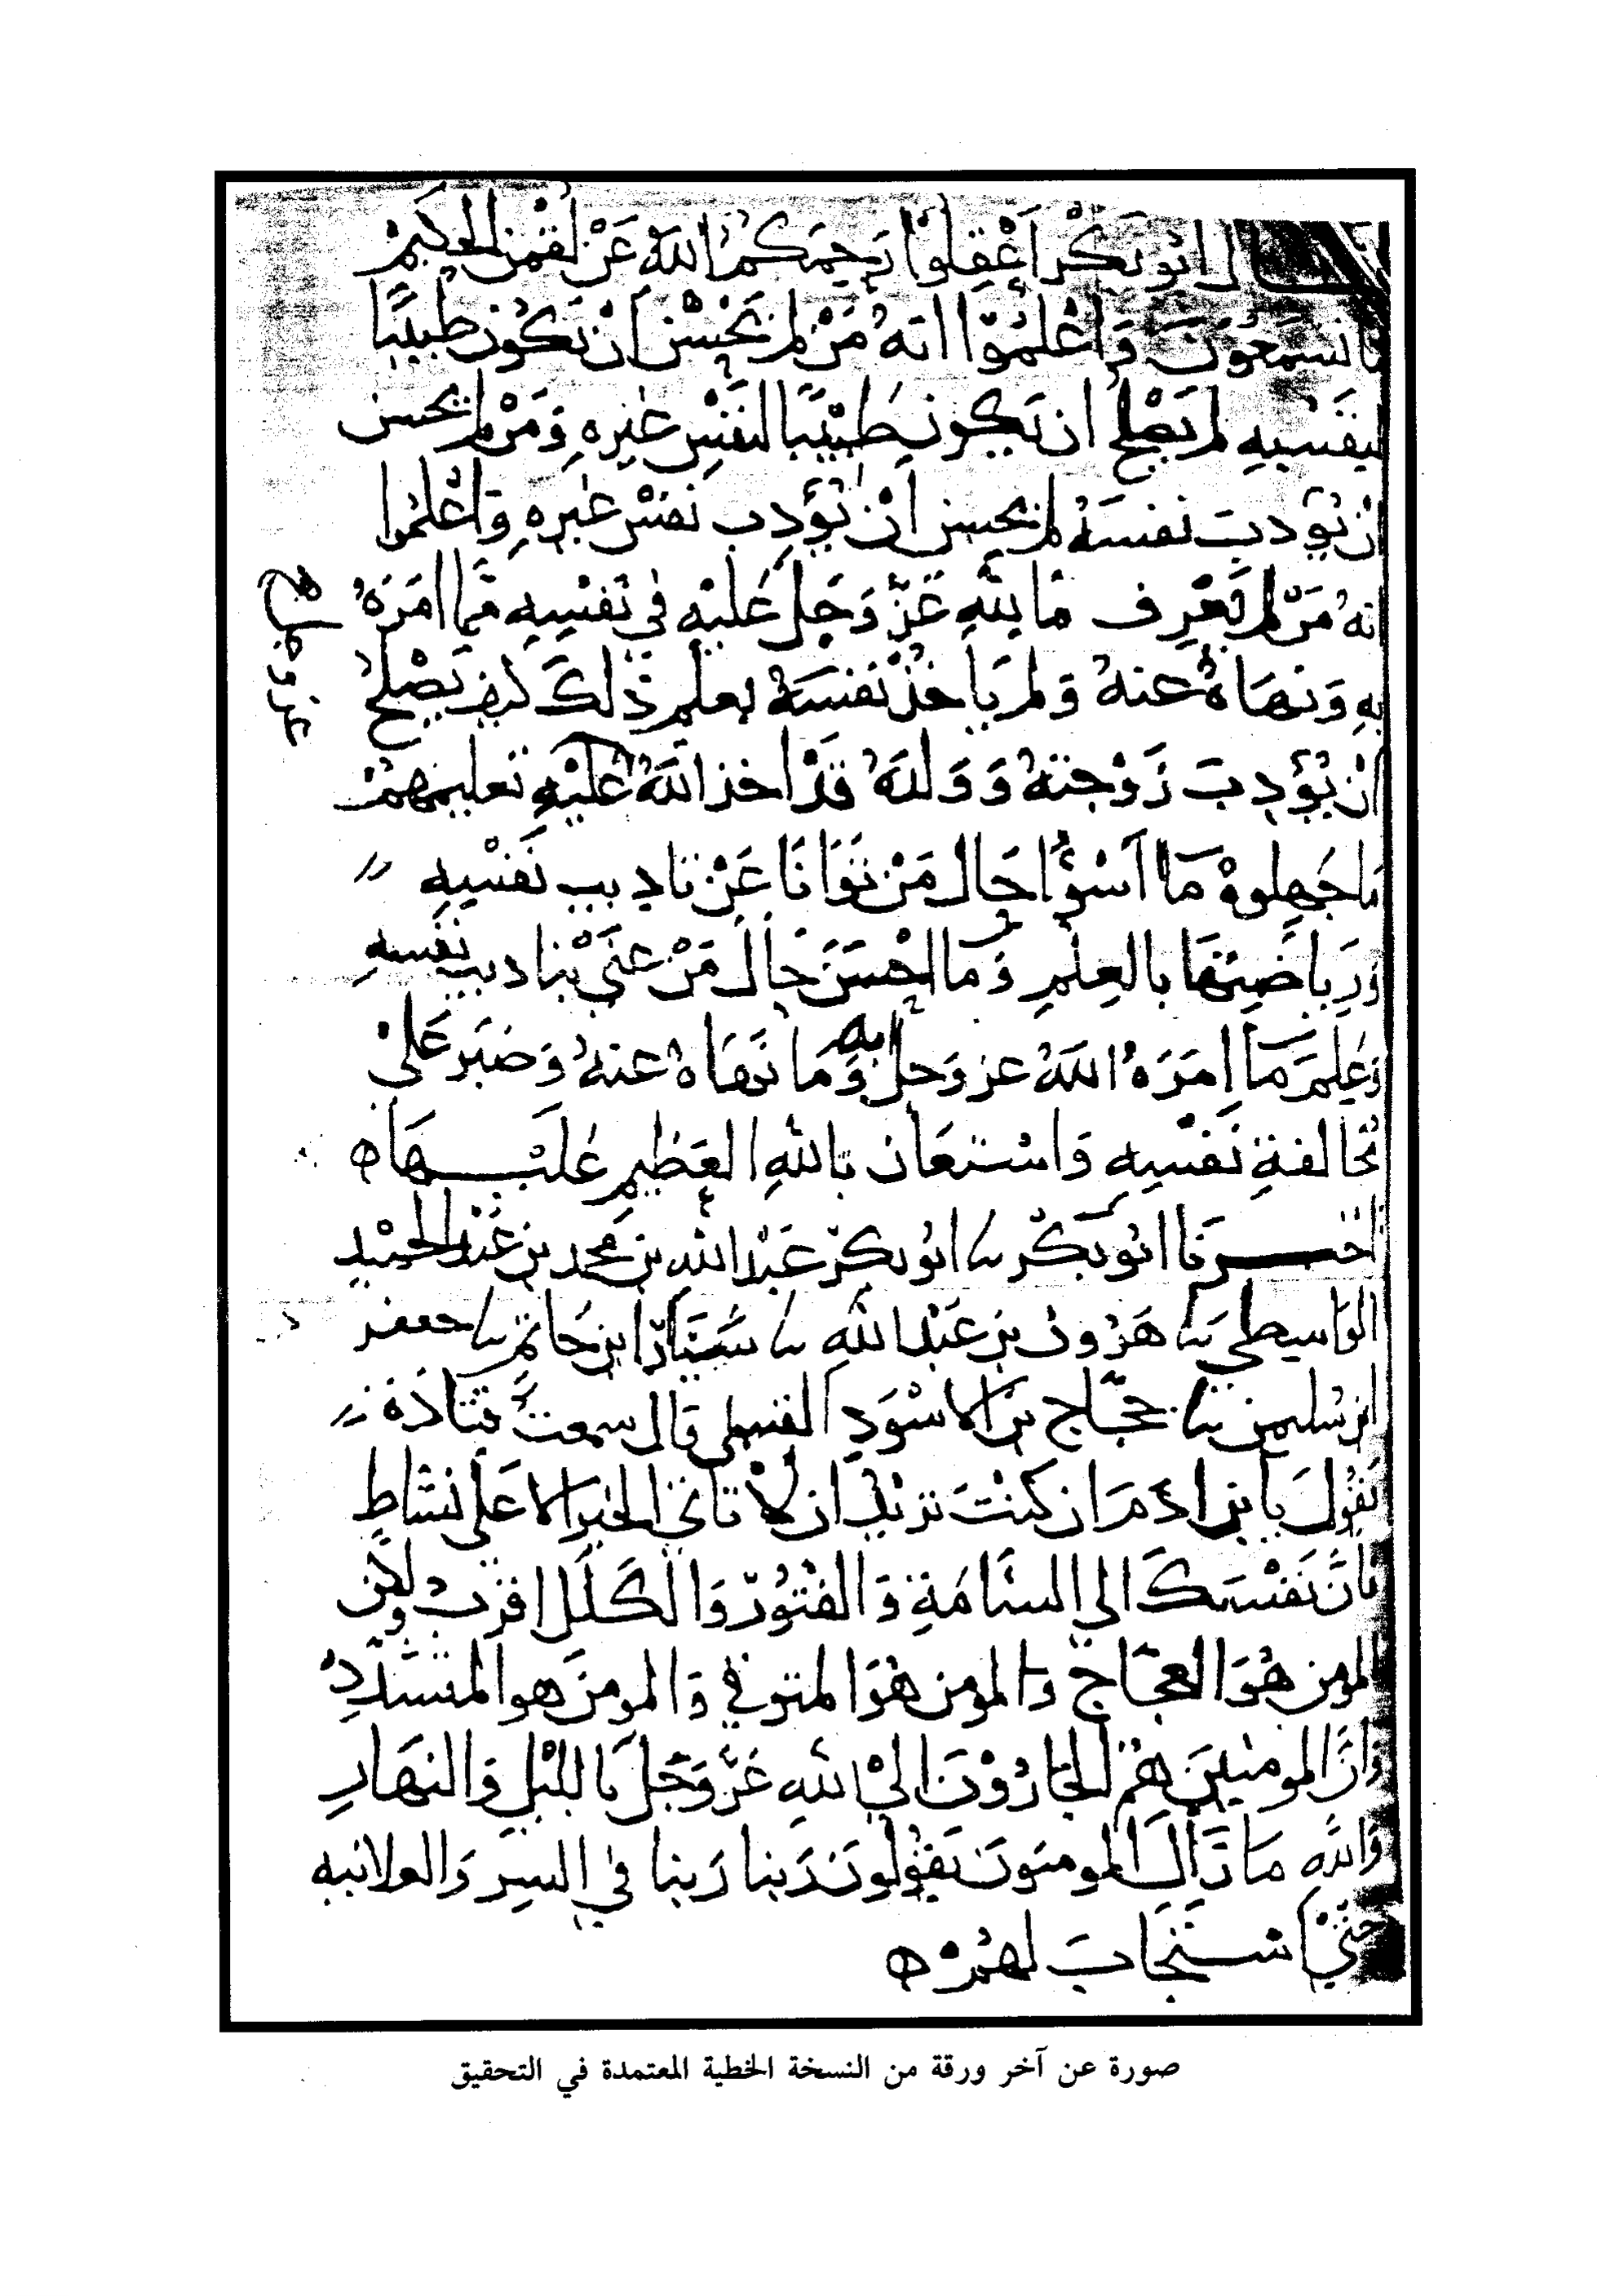 قال ابو بكر اعْقِلوا رَحِمَكم اللهُ عَنْ لقمن الحكيم
ما تسمعُونَ وَاعْلمُوا انهُ مَنْ لم يُحْسن انْ يكون طبيبًا
لنفسِهِ لم يَصْلحُ ان يكون طَبيْبًا لنفسِ غيرِهِ وَمَنْ لم يحسن
انْ يُؤدبَ نفسَهُ لم يحسن انْ يُؤَدِب نفسَ غيرِهِ وَاعْلمُوا
انهُ مَنْ لم يَعْرِف مَا للهِ عَزَّ وَجَلَّ عَليْهِ في نَفْسِهِ مّما امَرَهُ
بهِ وَنهَاهُ عنهُ وَلم يَاخذْ نفسَهُ بعلمِ ذلكَ كيف يَصْلحُ
انْ يُؤدِبَ زَوْجتهُ وَوَلدَهُ قَدْ اخذ اللهُ عَليْهِ تعليمهمْ
مَا جَهِلوهُ مَا اَسْوَأ حَالَ مَنْ تَوَانَا عَنْ تاديبِ نَفْسِهِ
وَرِيَاضتِهَا بالعِلمِ وَمَا احْسَنَ حَالَ مَنْ عنيَ بتاديب نفسهِ
وَعَلِمَ مَا امَرَهُ اللهُ عز وَجل به وَمَا نهَاهُ عنهُ وَصَبَر عَلىْ
مخالفةِ نَفْسِهِ وَاسْتعَان بَاللهِ العَظيمِ عَليْهَا ه
اخبرَنا ابُو بَكْر نا ابُو بكرٍ عَبْدُ اللهِ بن محمد بن عَبْد الحمِيْدِ
الوَاسِطي نا هَرُون بن عَبْد اللهِ نا سَيَّارُ ابن حَاتمٍ نا جعفر
ابن سُليمن نا حَجّاج بن الاسْوَدِ القسملي قال سمعت قتَادَة
يَقُولَ يا بن ادَمَ ان كنْتَ تريْدُ ان لا تاتيَ الخيرَ الا عَلى نشَاطٍ
فانَّ نَفْسَكَ الى السَّامَةِ وَالفتُورِ وَالكَلَلِ اقرَبُ وَلكن
المومن هُوَ العجّاج وَالمومن هُوَ المتوقي وَالمومنَ هو المتشدّدِ
وَانَّ المومنيْنَ هُمْ الجَارُوْنَ الىْ اللهِ عَزَّ وَجَلَّ باللَّيْلِ وَالنهَارِ
وَاللهِ مَا زَالَ المومنونَ يَقُولُونَ رَبنا رَبنا في السِرِ وَالعلانيه
حتىْ اسْتجَابَ لهُمْ ه
صورة عن آخر ورقة من النسخة الخطية المعتمدة في التحقيق